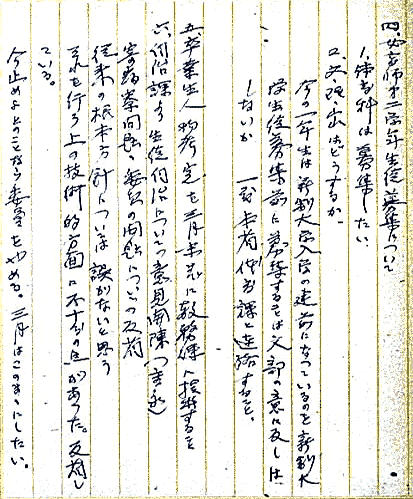 四、女高師第二学年生徒募集について
1. 体育科は募集したい。
2. 文、理、家はどうするか。
今の一年生は新制大学入学の建前になっているのを新制大
学生徒募集前に募集することは文部の意に反しは
しないか 一応本省 課と連絡すること。
五、卒業生人物考定を三月末迄に教務課に提出すること
六、 課より生徒 について意見開陳
寄宿寮問題、委員の問題についての反省
従来の根本方針については誤がないと思う
それを行う上の技術的方面に不十分の点があった。反省し
ている。
今止めよとのことなら委員をやめる。三月はこのままにしたい。